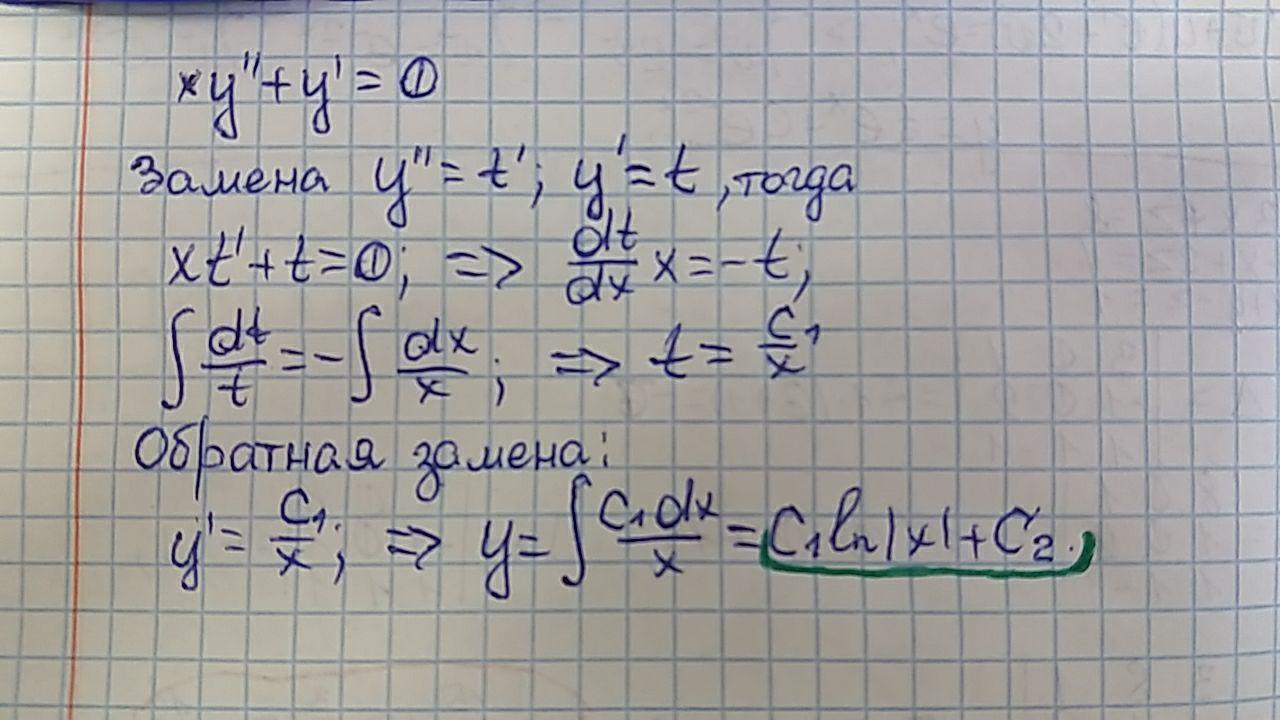 xy''+y' = 0
Замена y'' = t'; y' = t, тогда
xt'+t=0; => dt/dx x = -t;
∫ dt/t = -∫ dx/x; => t = C₁/x
Обратная замена:
y' = C₁/x; => y = ∫ C₁dx/x = C₁ln|x|+C₂.